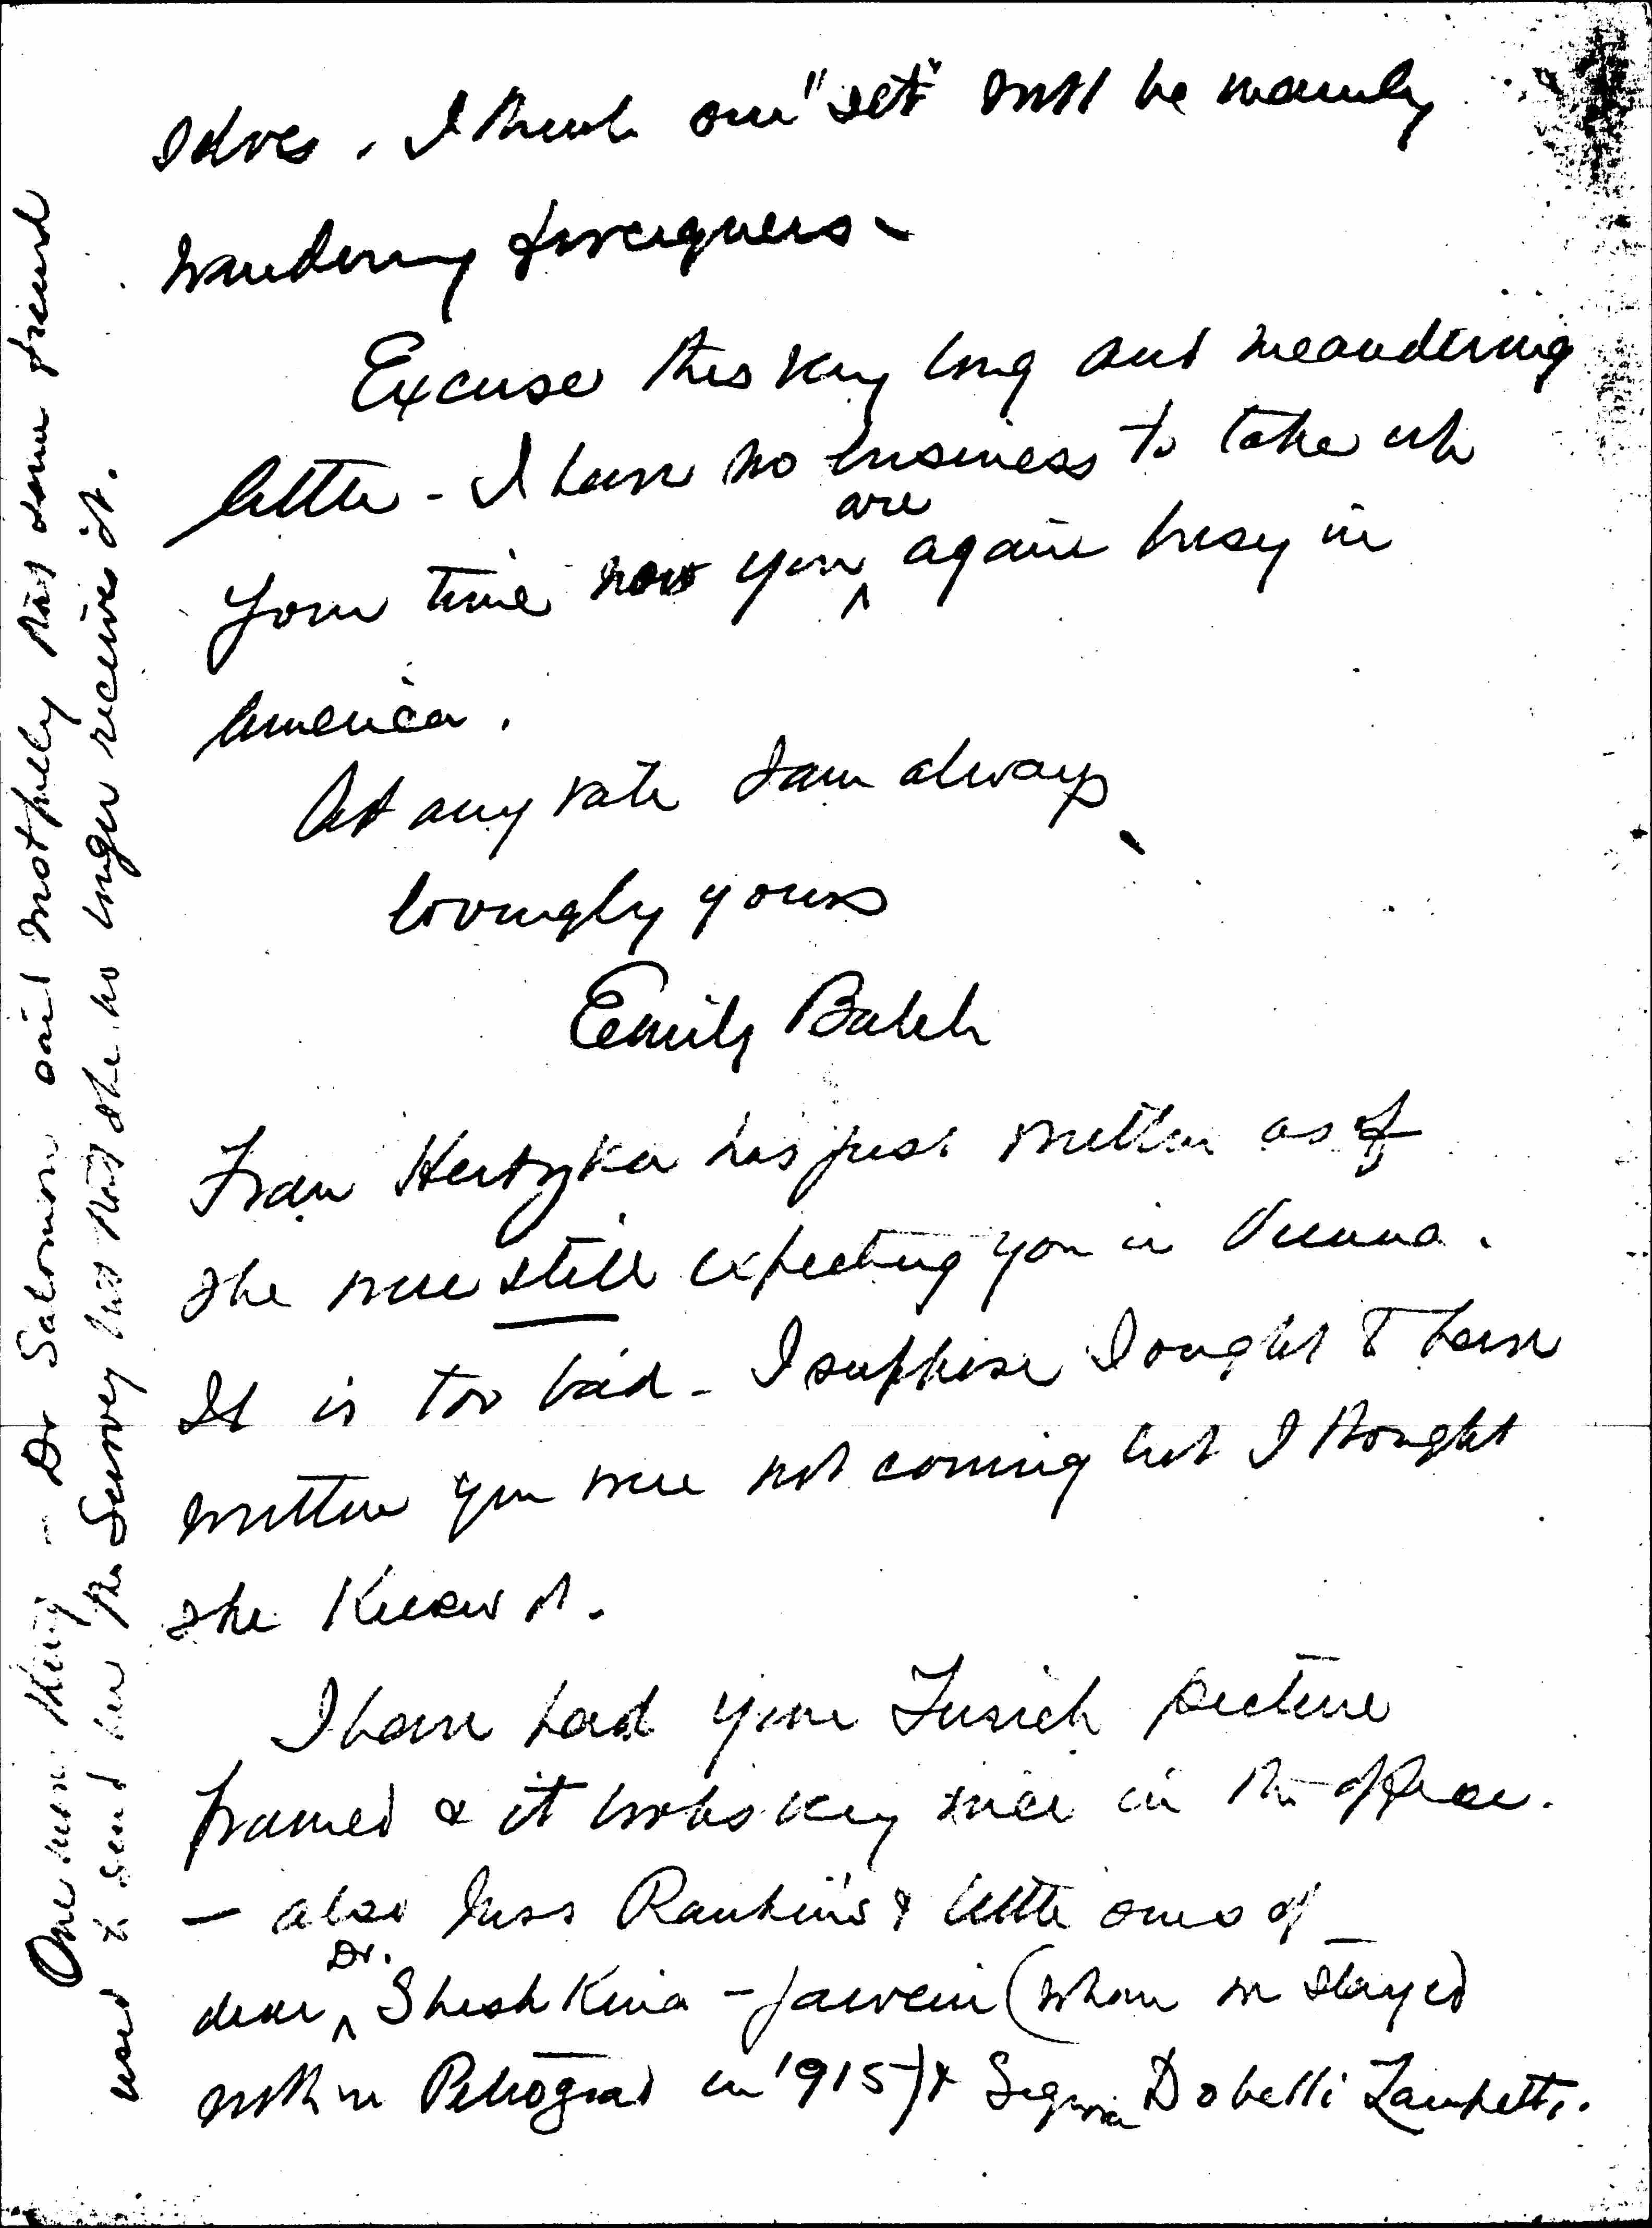 selves. I think our "set" will be mainly
wandering foreigners.
Excuse this very long and meandering
letter - I have no business to take up
your time now you are again busy in
America.
At any rate I am always
lovingly yours
Emily Balch
Frau Hertzka has just written as if
she were still expecting you in Vienna.
It is too bad - I suppose I ought to have
written you were not coming but I thought
she knew it.
I have had your Zurich picture
framed & it looks very nice in the office.
- also Miss Rankin's & little ones of
dear Dr. Shishkina-Javein (whom we stayed
with in Petrograd in 1915) & Signora Dobelli Zampetti.
One more thing - Dr Salomon said wistfully that some friend
used to send her the Survey but that she no longer receives it.